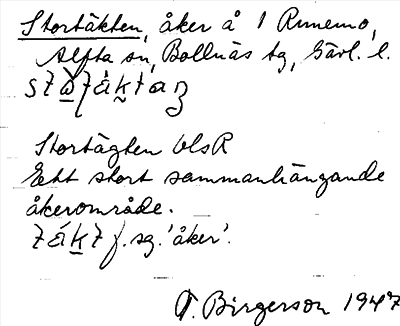 Stortäkten, åker å 1 Runemo,
Alfta sn, Bollnäs tg, Gävl. l.
Stortägten UlsR
Ett stort sammanhängande
åkerområde.
f. sg. 'åker'.
T. Birgerson 1947